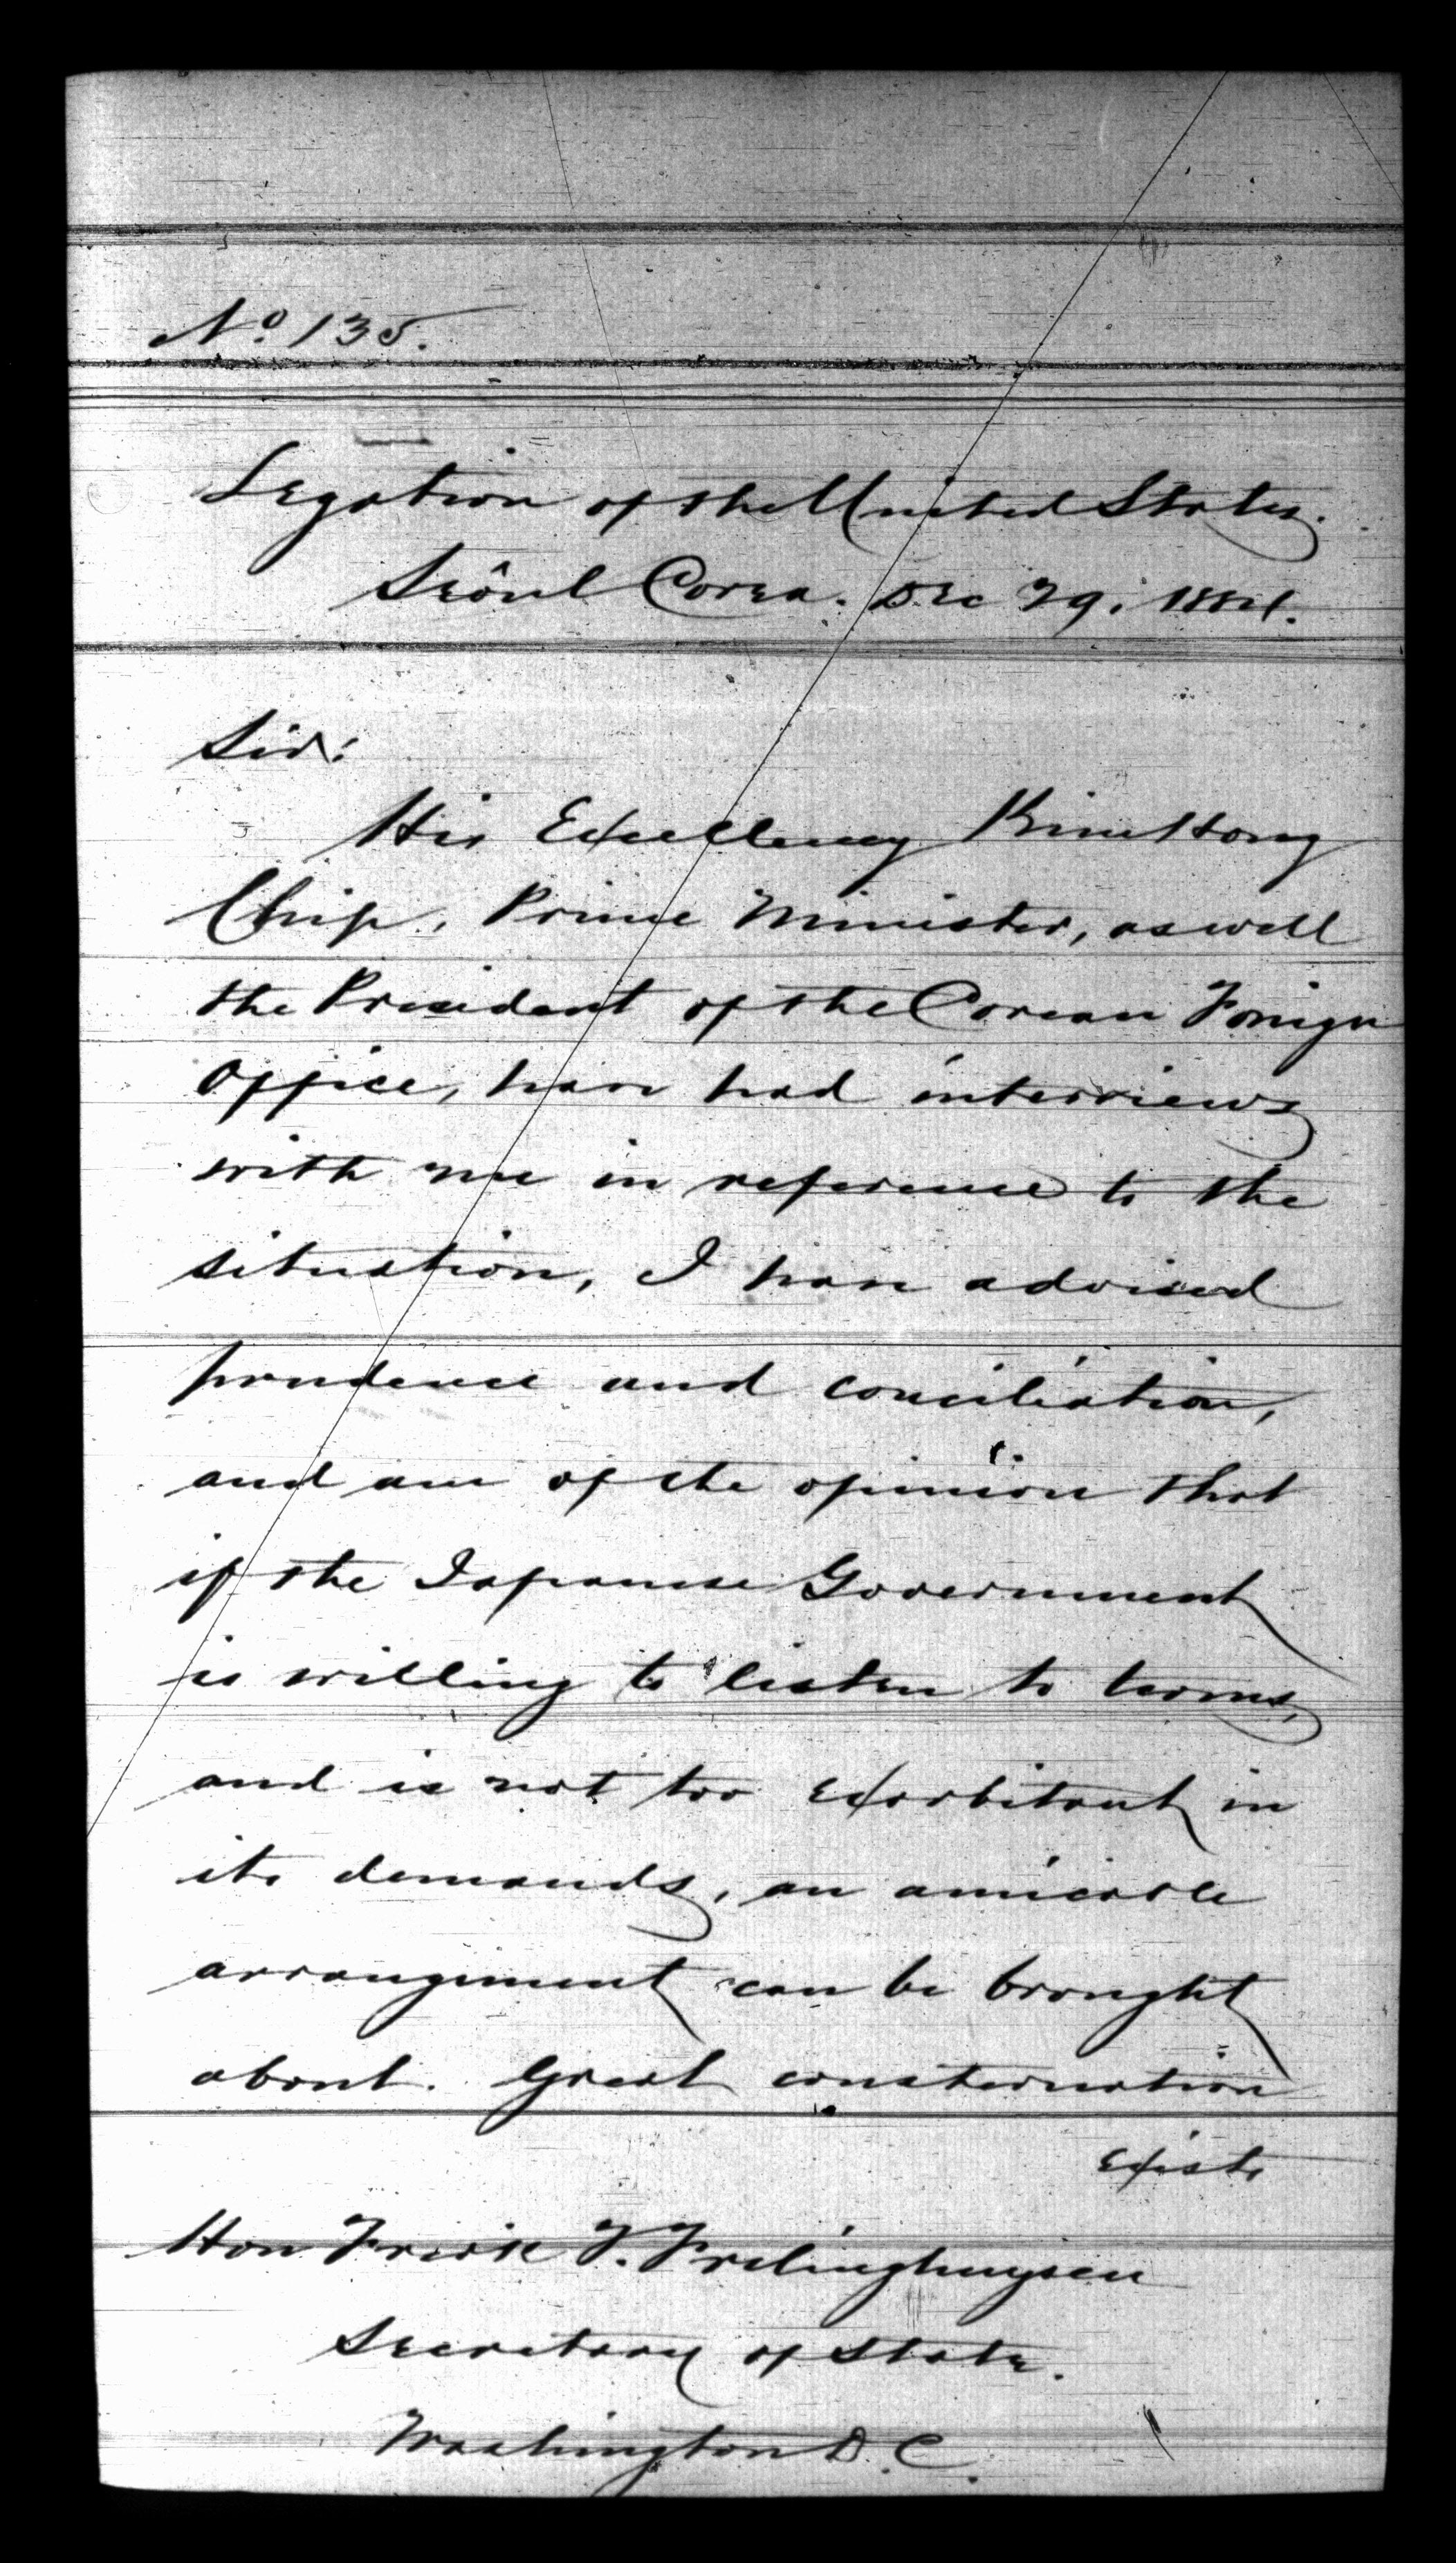 No. 135.
Legation of the United States.
Seôul Corea. Dec 29, 1884.
Sir:
His Excellency Kim Hong
Chip, Prime Minister, as well
the President of the Corean Foreign
Office, have had interviews
with me in reference to the
situation, I have advised
prudence and conciliation,
and am of the opinion that
if the Japanese Government
is willing to listen to terms,
and is not too exorbitant in
its demands, an amicable
arrangement can be brought
about. Great consternation
exists
Hon Fredk T. Frelinghuysen
Secretary of State.
Washington D.C.